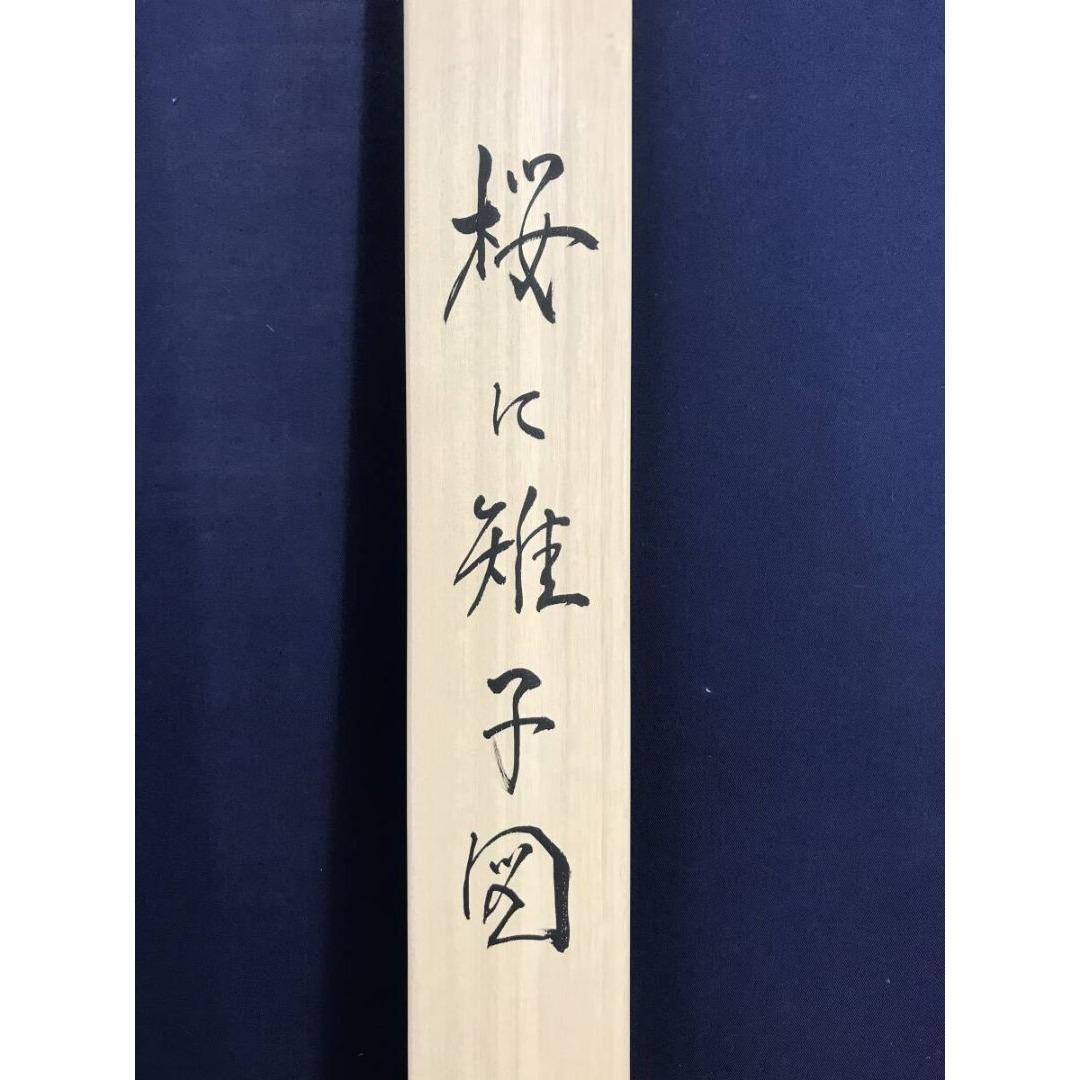 桜に雉子図